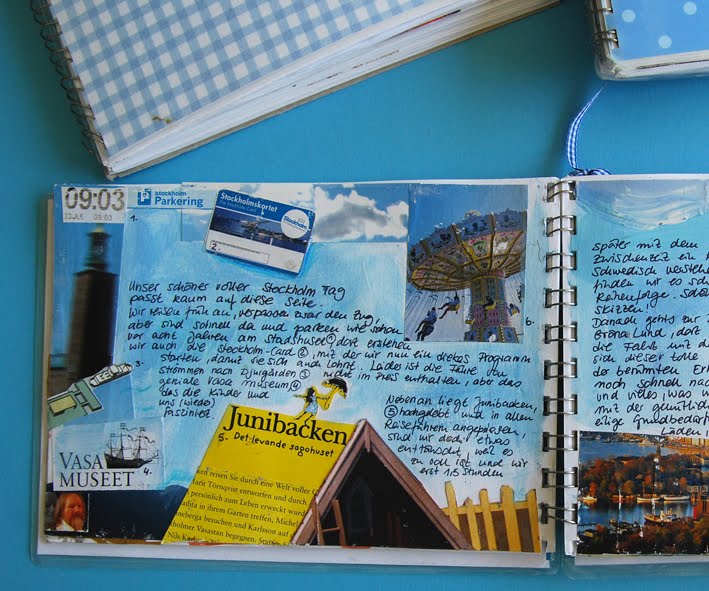 09:03
23JUL 09:03
Stockholm
Parkering
1.
Stockholmskortet
Stockholm
2.
6.
Unser schöner voller Stockholm Tag
passt kaum auf diese Seite.
Wir reisen früh an, verpassen zwar den Zug,
aber sind schnell da und parken wie schon
vor acht Jahren am Stadshuset 1 dort erstehen
wir auch die Stockholm-Card 2, mit der wir nun ein dickes Programm
starten, damit sie sich auch lohnt. Leider ist die Fähre zu
strömmen nach Djurgården 3 nicht im Preis enthalten, aber das
geniale Vasa museum 4
das die Kinder und
uns (wieder)
fasziniert.
3.
Nebenan liegt Junibacken,
5 hochgelobt und in allen
Reiseführern angepriesen,
sind wir doch etwas
enttäuscht, weil es
zu voll ist und wir
erst 1,5 Stunden
Junibacken
5. Det levande sagohuset
VASA
MUSEET
4.
reisen Sie durch eine Welt voller
Marit Törnqvist entworfen und durch
persönlich zum Leben erweckt wurd
Madita in ihrem Garten treffen, Michel
nneberga besuchen und Karlsson auf
holmer Vasastan begegnen.
Nils Karl
später mit dem
Zwischenzeit ein
Schwedisch verstehe
finden wir es
Reihenfolge.
Skizzen.
Danach gehts zur
Gröna Lund, dort
die Fahrt mit d
sich dieser tolle
der berühmten
noch schnell nach
und vieles, was
mit der
eilige Grundbedürf
Läden,